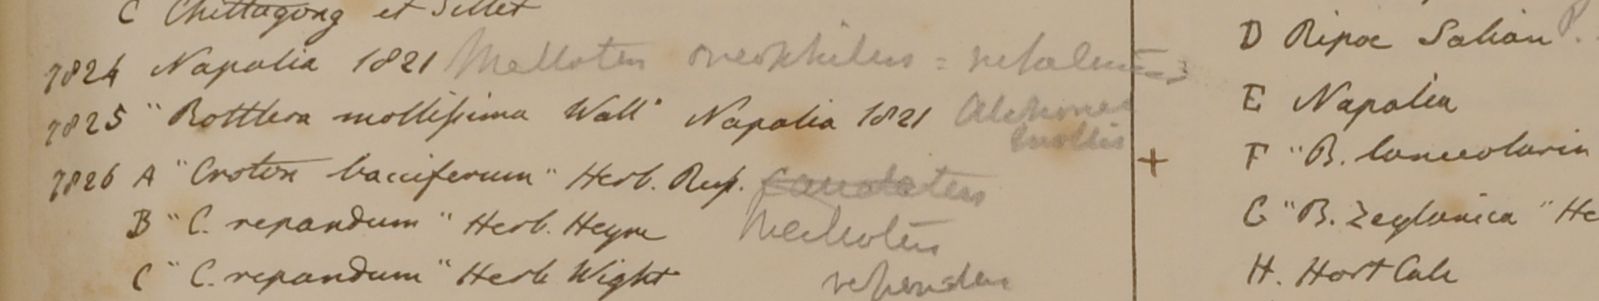 C Chittagong et Sillet
7824 Napalia 1821 Mallotus oreophilus = nepalensis
7825 "Rottlera mollissima Wall" Napalia 1821
mollis
7826 A "Croton bacciferum" Herb. Rup.
B "C. repandum" Herb. Heyne Mallotus
C "C. repandum" Herb Wight repandus
D Ripoe Salian
E Napalia
+ F "B. lanceolaria
G "B. Zeylanica" He
H. Hort Calc